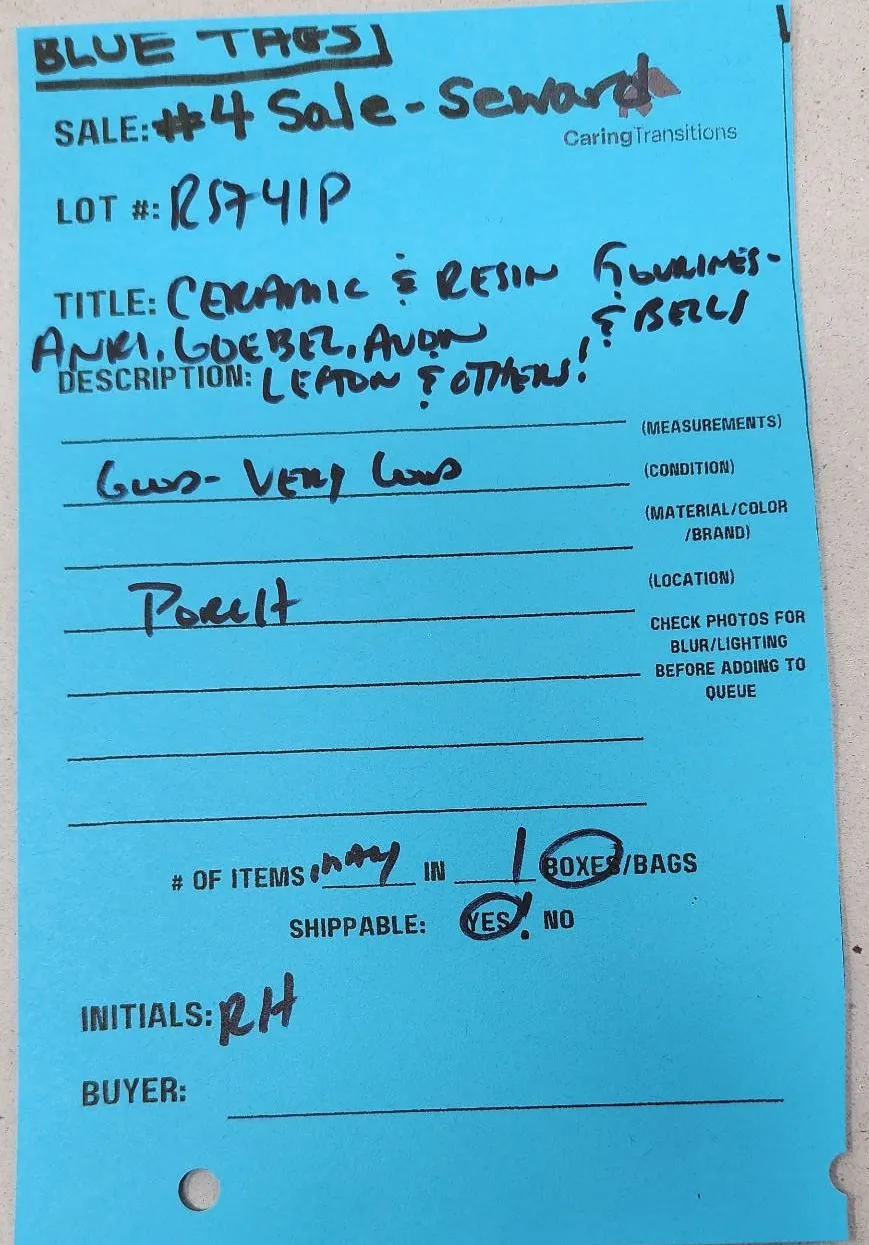 BLUE TAGS
SALE: #4 Sale - Seward
CaringTransitions
LOT #: RS741P
TITLE: CERAMIC & RESIN FIGURINES -
ANRI, GOEBEL, AVON & BELLS
DESCRIPTION: LEFTON & OTHERS!
(MEASUREMENTS)
GOOD - VERY GOOD (CONDITION)
(MATERIAL/COLOR
/BRAND)
PORCH (LOCATION)
CHECK PHOTOS FOR
BLUR/LIGHTING
BEFORE ADDING TO
QUEUE
# OF ITEMS MANY IN 1 BOXES/BAGS
SHIPPABLE: YES! NO
INITIALS: RH
BUYER: